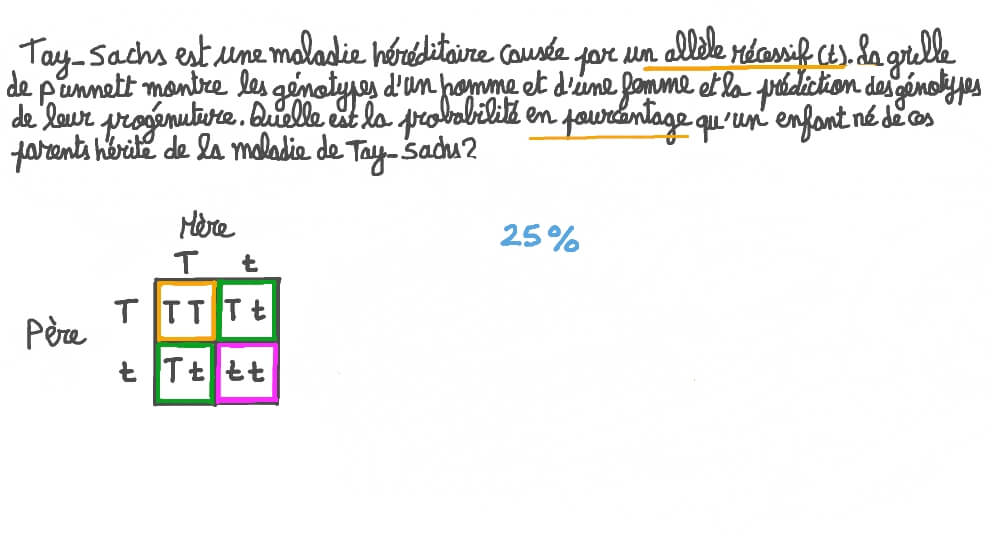 Tay-Sachs est une maladie héréditaire causée par un allèle récessif (t). La grille
de Punnett montre les génotypes d'un homme et d'une femme et la prédiction des génotypes
de leur progéniture. Quelle est la probabilité en pourcentage qu'un enfant né de ces
parents hérite de la maladie de Tay-Sachs?
Mère
25%
T t
T TT Tt
Père
t Tt tt